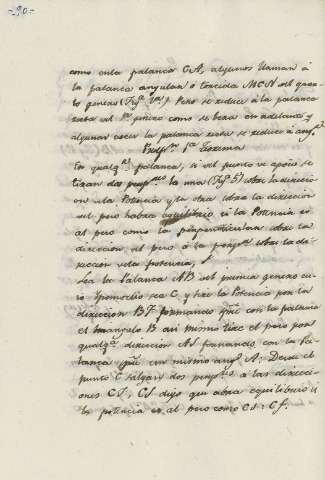 -20-
como en la palanca CA, algunos llaman à
la palanca angular ó torcida MCN del quar-
to genero (Fig.ª 4ª). Pero se reduce à la palanca
recta del 1º genero como se verá en adelante y
algunas veces la palanca recta se reduce à ang.ª
Prop.ⁿ 1ª Teorema
En qualq.ª palanca, si del punto de apoio se
tiran dos perp.res la una (Fig.ª 5ª) sobre la direccion
de la Potencia y la otra sobre la direccion
del peso habra equilibrio si la Potencia es
al peso como la perpendicular sobre la
direccion del peso à la perp.r sobre la di-
reccion de la potencia,
Sea la Palanca AB del primer genero cuio
Ipomoclio sea C, y tire la Potencia por la
direccion BF formando qual. con la palanca
el triangulo B asi mismo tire el peso por
qualq.ª direccion AI formando con la Pa-
lanca qual. un mismo ang.º A: Desde el
punto C salgan dos perp.res à las direccio-
nes CI, CS digo que abra equilibrio si
la potencia es al peso como CI: Cf.